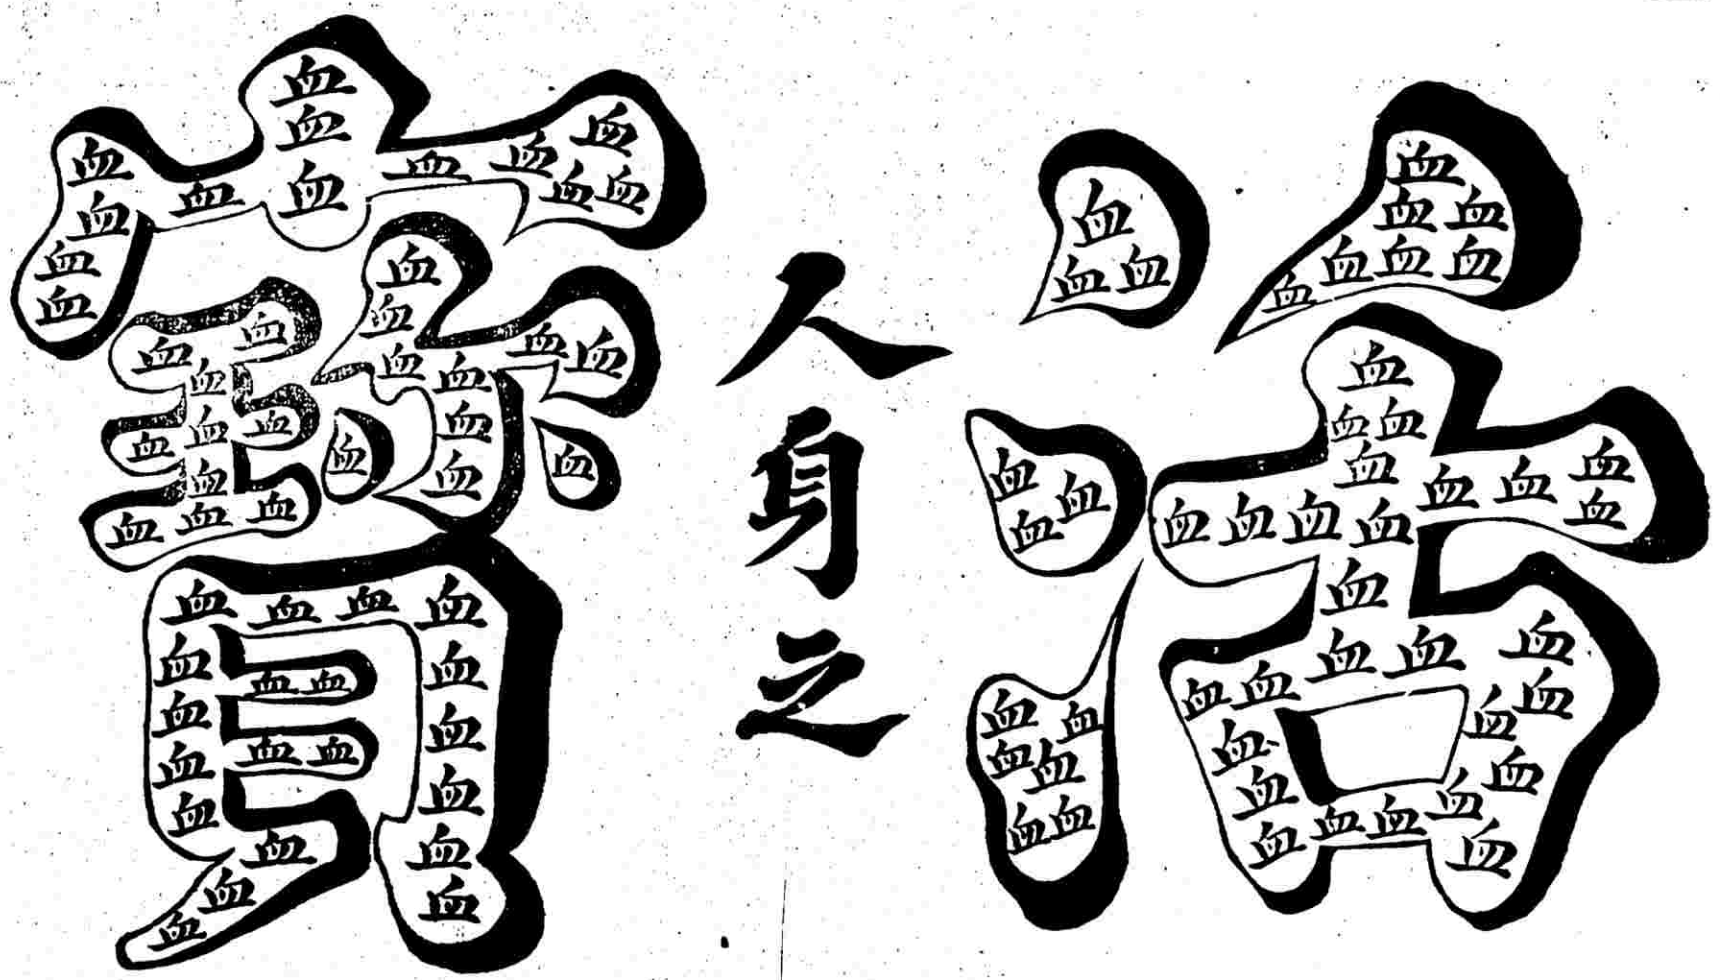 活
人身之
寳
血